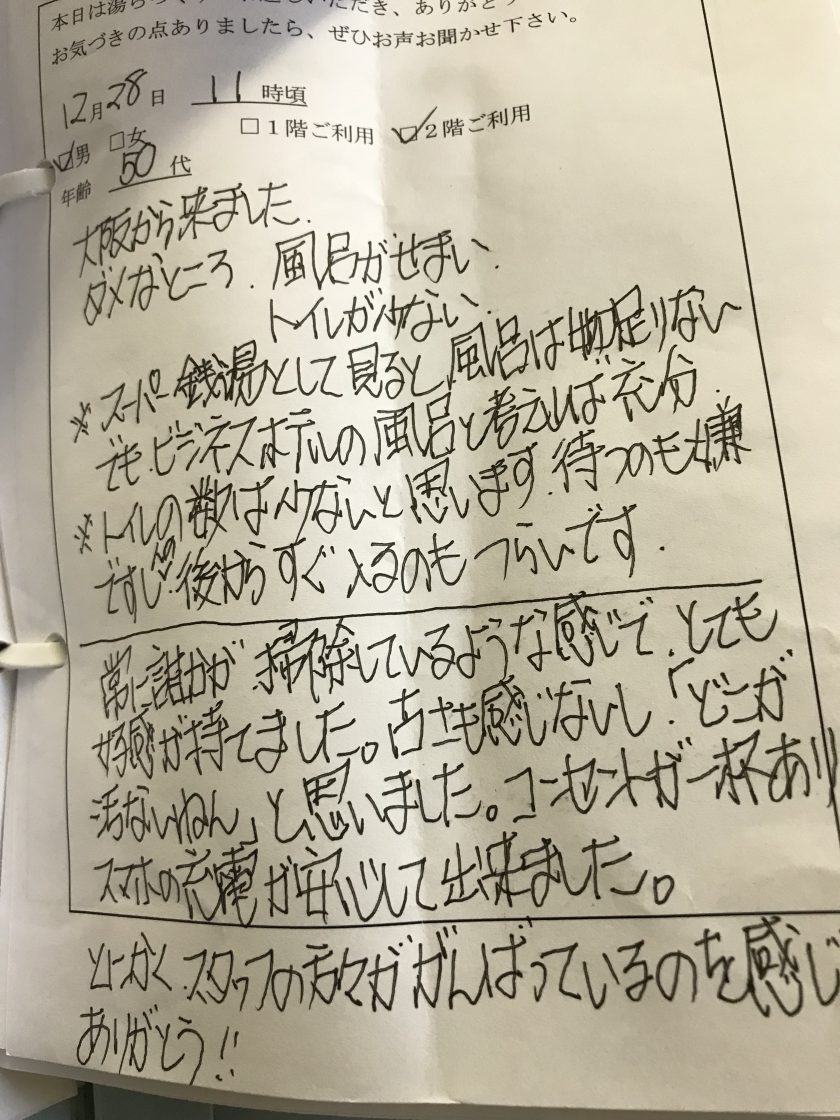 本日は湯ら
いただき、ありがとう
お気づきの点ありましたら、ぜひお声お聞かせ下さい。
12月28日 11時頃
☑男 □女 □1階ご利用 ☑2階ご利用
年齢 50代
大阪から来ました.
ダメなところ. 風呂がせまい.
トイレが少ない.
※スーパー銭湯として見ると、風呂は物足りない
でも.ビジネスホテルの風呂と考えれば充分.
※トイレの数は少ないと思います.待つのも嫌
ですし人の後からすぐ入るのもつらいです.
常に誰かが掃除しているような感じで、とても
好感が持てました。古さも感じないし、「どこが
汚ないねん」と思いました。コンセントが一杯あり
スマホの充電が安心して出来ました。
とにかく、スタッフの方々ががんばっているのを感じ
ありがとう!!